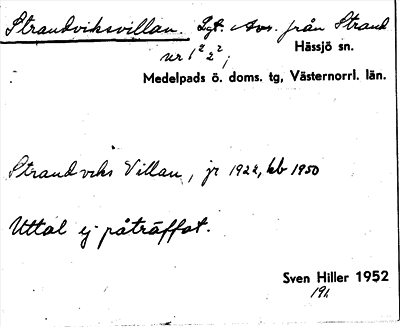 Strandviksvillan. Lgt. Avs. från Strand
nr 1² 2²,
Hässjö sn.
Medelpads ö. doms. tg, Västernorrl. län.
Strandviks Villan, jr 1922, kb 1950
Uttal ej påträffat.
Sven Hiller 1952